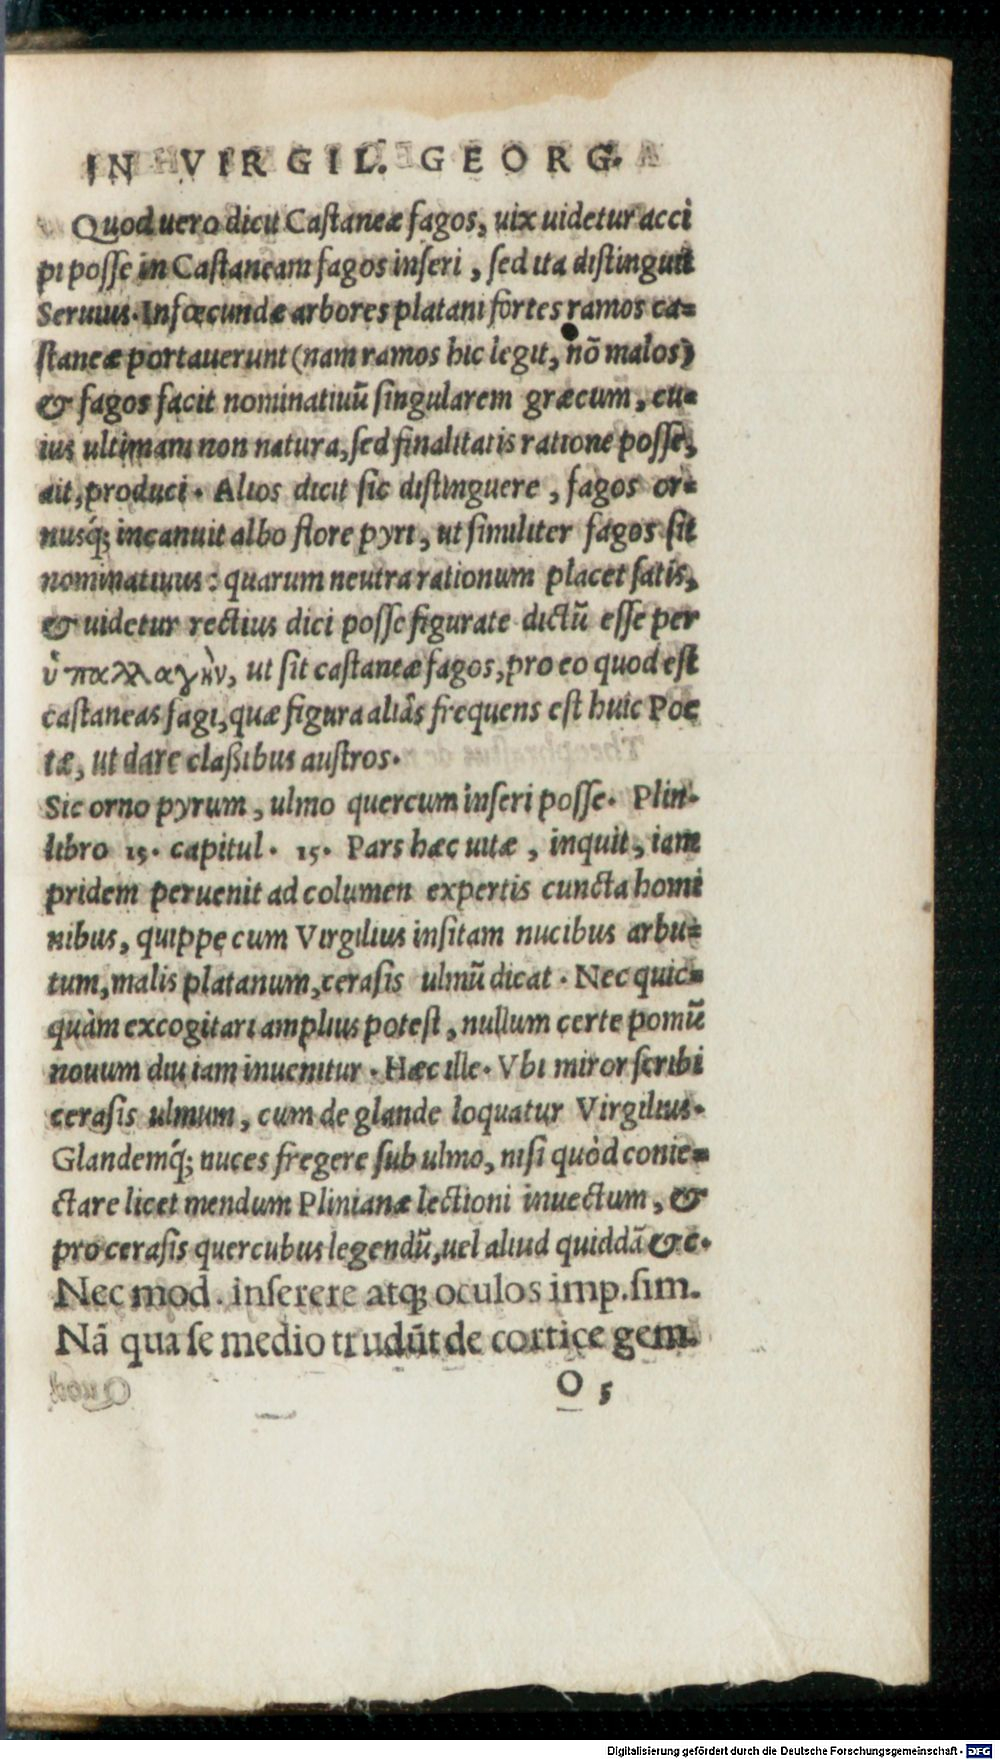 IN VIRGIL. GEORG.
Quod uero dicit Castaneæ fagos, uix uidetur acci
pi posse in Castaneam fagos inseri, sed ita distinguit
Seruius. Infœcundæ arbores platani fortes ramos ca=
staneæ portauerunt (nam ramos hic legit, nō malos)
& fagos facit nominatiuū singularem græcum, cu=
ius ultimam non natura, sed finalitatis ratione posse,
ait, produci. Alios dicit sic distinguere, fagos or=
nusq́; incanuit albo flore pyri, ut similiter fagos sit
nominatiuus: quarum neutra rationum placet satis,
& uidetur rectius dici posse figurate dictū esse per
ὑπαλλαγὴν, ut sit castaneæ fagos, pro eo quod est
castaneas fagi, quæ figura aliâs frequens est huic Poe
tæ, ut dare claßibus austros.
Sic orno pyrum, ulmo quercum inseri posse. Plin.
libro 15. capitul. 15. Pars hæc uitæ, inquit, iam
pridem peruenit ad columen expertis cuncta homi
nibus, quippe cum Virgilius insitam nucibus arbu=
tum, malis platanum, cerasis ulmū dicat. Nec quic=
quàm excogitari amplius potest, nullum certe pomū
nouum diu iam inuenitur. Hæc ille. Vbi miror scribi
cerasis ulmum, cum de glande loquatur Virgilius.
Glandemq́; nuces fregere sub ulmo, nisi quòd conie=
ctare licet mendum Plinianæ lectioni inuectum, &
pro cerasis quercubus legendū, uel aliud quiddā &c.
Nec mod. inserere atq; oculos imp. sim.
Nā qua se medio trudūt de cortice gem.
O 5
Digitalisierung gefördert durch die Deutsche Forschungsgemeinschaft - DFG